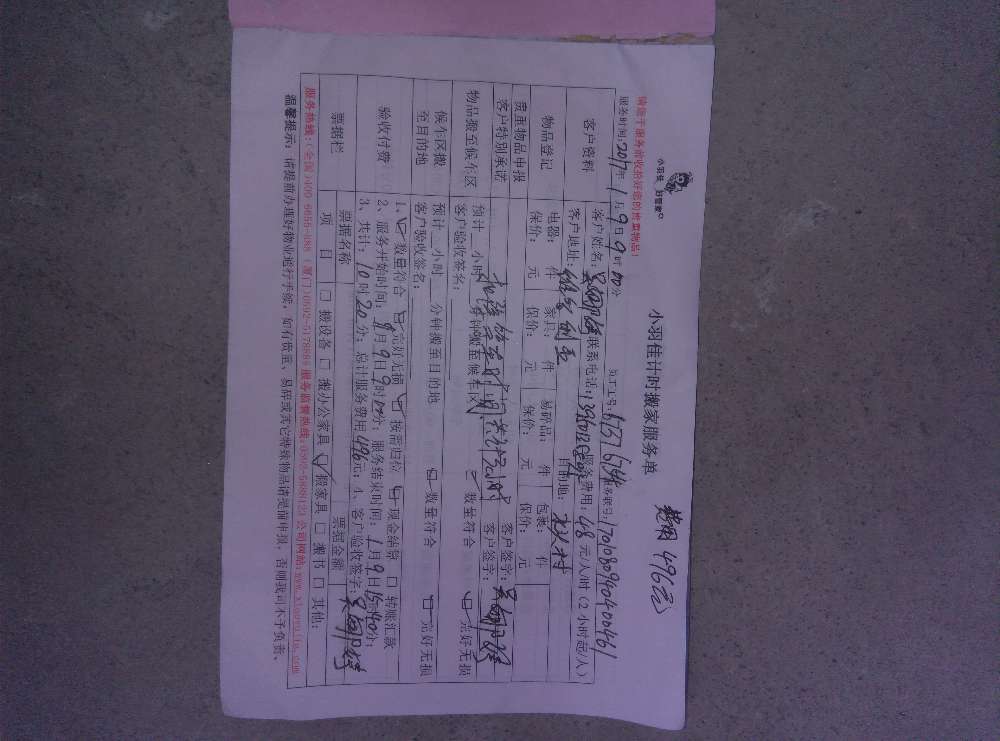 小羽佳 好管家
小羽佳计时搬家服务单
费用 496元
请您于服务前收拾好您的贵重物品!
服务时间:2017年1月9日9时00分
员工工号:
1701080940400461
客户资料
客户姓名:
联系电话:
服务费用:48元/人/时(2小时起/人)
客户地址:
目的地:
物品登记
电器: 件 家具: 件 易碎品: 件 包装: 件
保价: 元 保价: 元 保价: 元 保价: 元
贵重物品申报
客户特别承诺
客户签字:
客户签字:
物品搬至候车区
预计 小时 分钟搬至候车区
数量符合 完好无损
客户验收签名:
候车区搬
至目的地
预计 小时 分钟搬至目的地
数量符合 完好无损
客户验收签名:
验收付费
1、数量符合 完好无损 按需归位 现金结算 转账汇款
2、服务开始时间:1月9日9时00分;服务结束时间:1月9日15时40分;
3、共计:10时20分;总计服务费用496元;4、客户验收签字:
票据栏
票据名称
票据金额
项 目
搬设备 搬办公家具 搬家具 搬书 其他:
服务热线:(全国)400-6655-888 (厦门)0592-5178888 服务监督热线:0592-5888123 公司网站:www.xiaoyujia.com
温馨提示:请提前办理好物业通行手续,如有贵重、易碎或其它特殊物品请提前申报,否则我司不予负责。